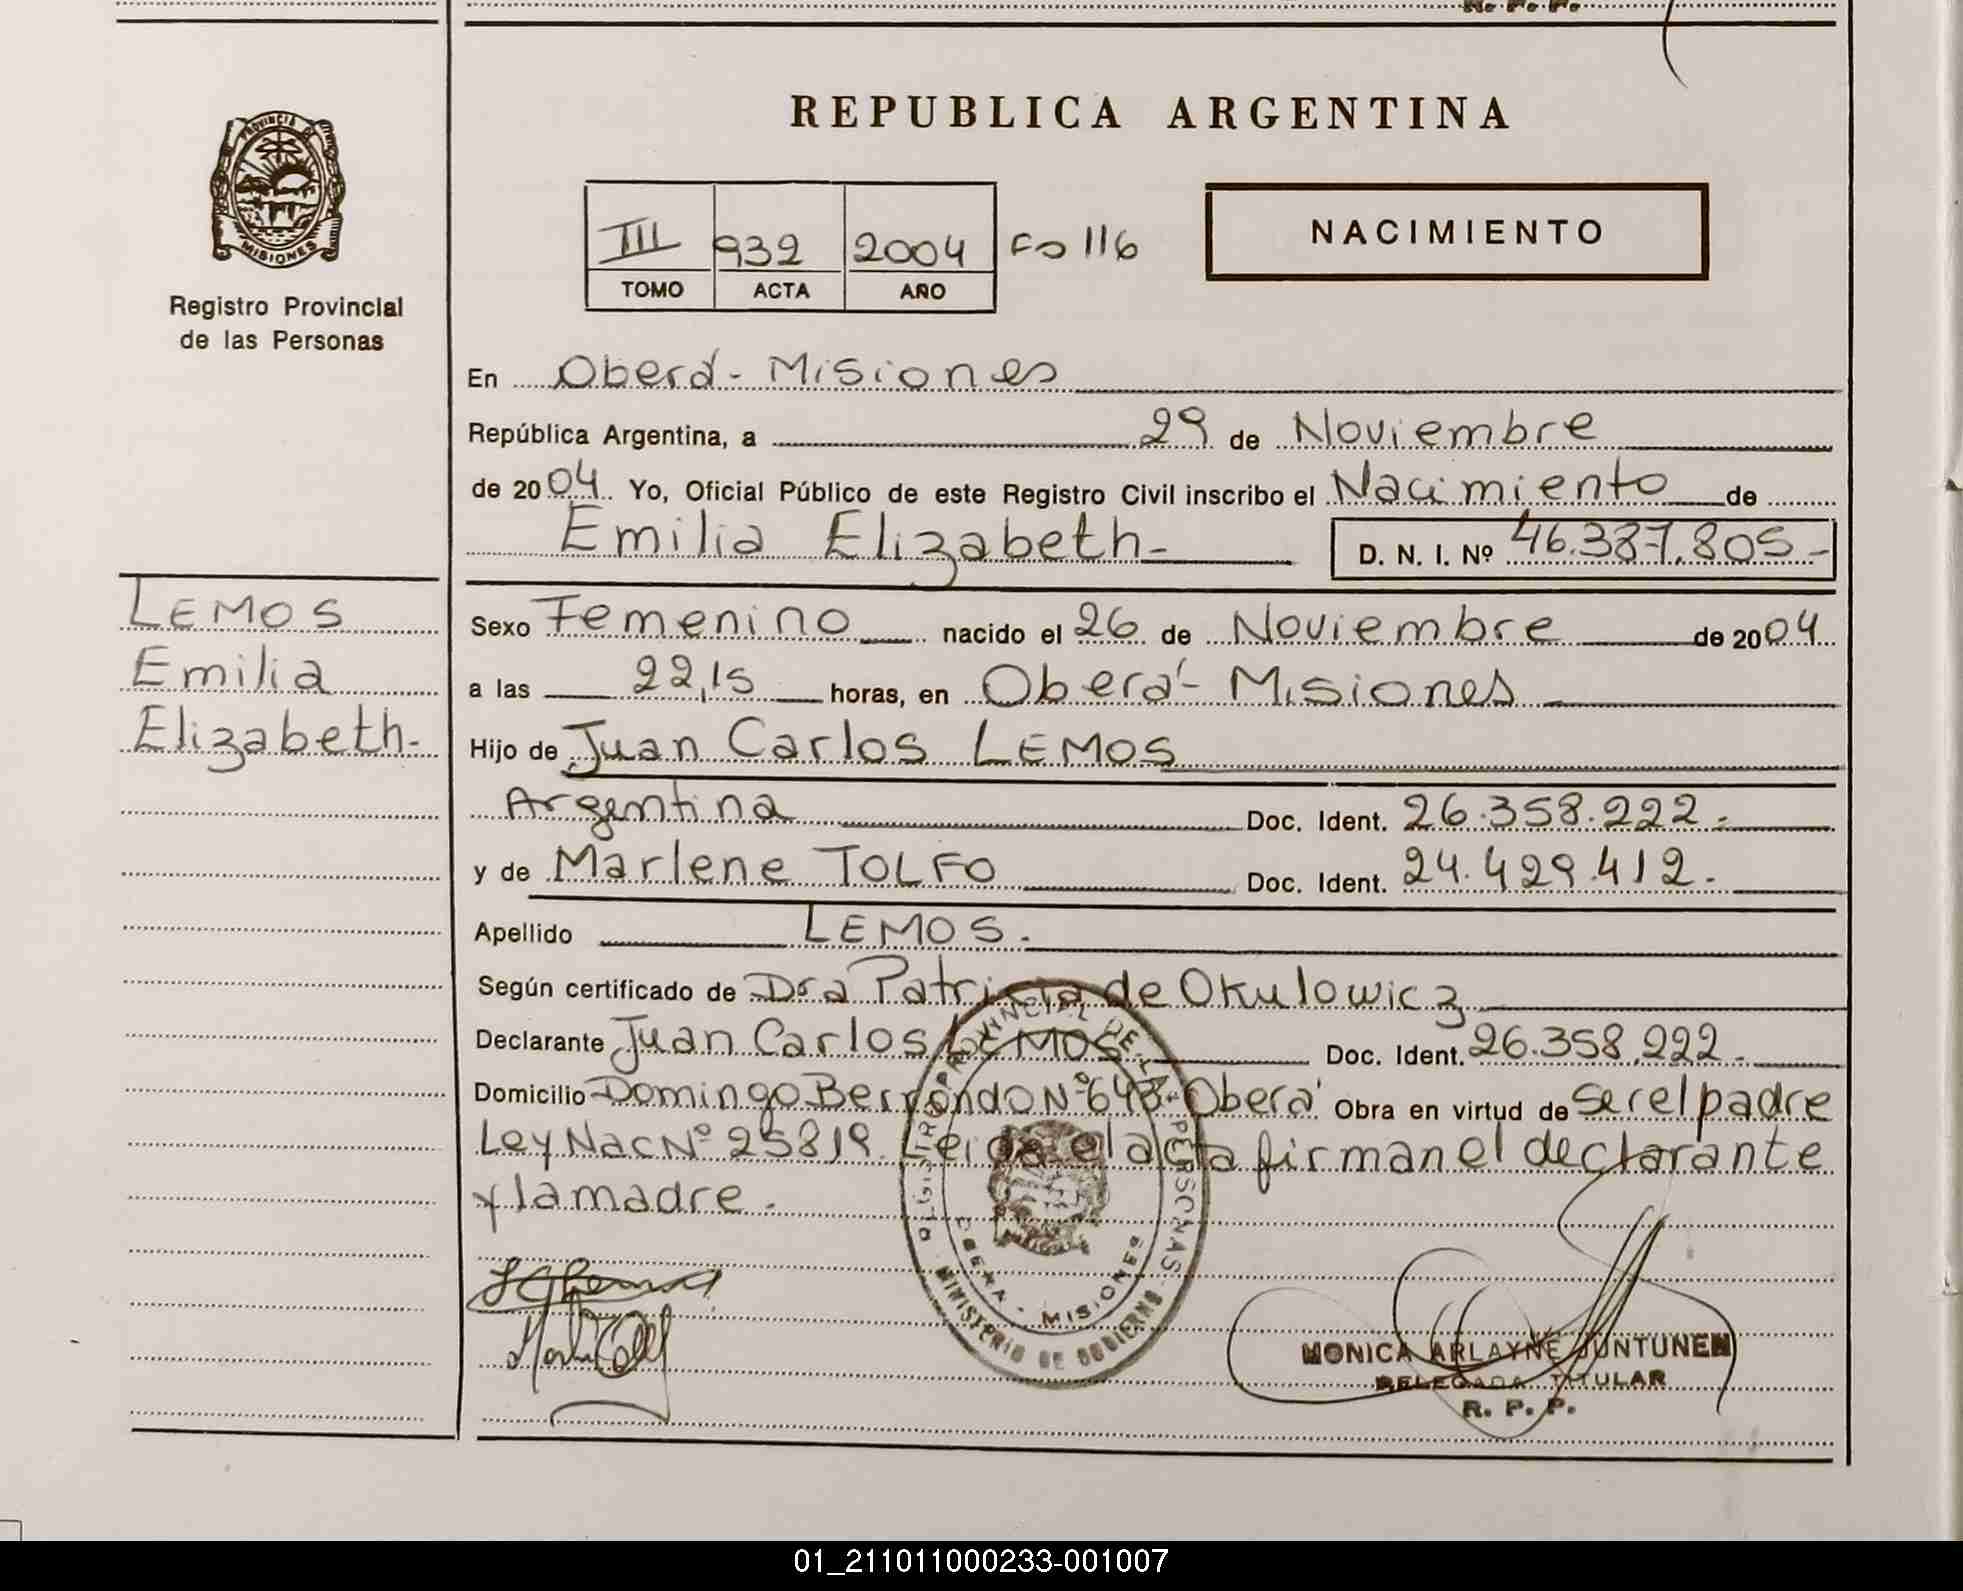 R. P. P.
REPUBLICA ARGENTINA
PROVINCIA DE
MISIONES
Registro Provincial
de las Personas
III 932 2004 Fo 116
TOMO ACTA AÑO
NACIMIENTO
En Oberá - Misiones
República Argentina, a 29 de Noviembre
de 2004. Yo, Oficial Público de este Registro Civil inscribo el Nacimiento de
Emilia Elizabeth- D. N. I. Nº 46.387.805-
LEMOS
Emilia
Elizabeth-
Sexo Femenino nacido el 26 de Noviembre de 2004
a las 22,15 horas, en Oberá - Misiones
Hijo de Juan Carlos LEMOS
Argentina Doc. Ident. 26.358.222.-
y de Marlene TOLFO Doc. Ident. 24.429.412.-
Apellido LEMOS.
Según certificado de Dra Patricia de Okulowicz
Declarante Juan Carlos LEMOS Doc. Ident. 26.358.222.
Domicilio Domingo Berrondo Nº 643- Oberá. Obra en virtud de ser el padre
Ley Nac Nº 25819. Leida el acta firman el declarante
y la madre.
REGISTRO PROVINCIAL DE LAS PERSONAS
OBERA - MISIONES
MINISTERIO DE GOBIERNO
MONICA ARLAYNE JUNTUNEN
DELEGADA TITULAR
R. P. P.
01_211011000233-001007